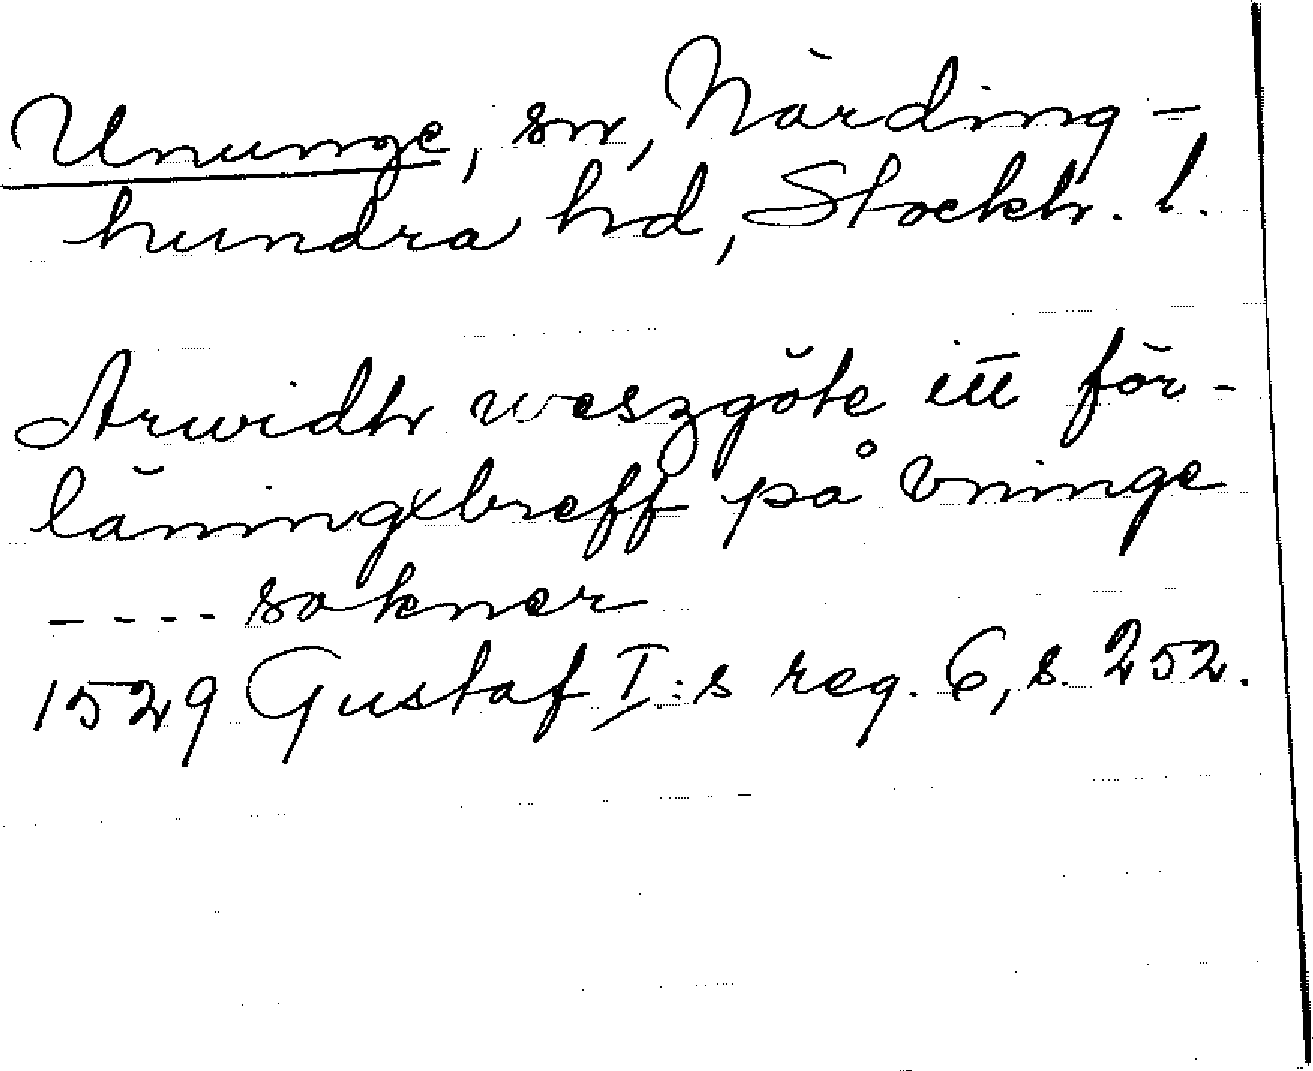 Ununge, sn, Närding-
hundra hd, Stockh. l.
Arwidh weszgöte itt för-
läningxbreff på Vninge
---- sokner
1529 Gustaf I:s reg. 6, s. 252.